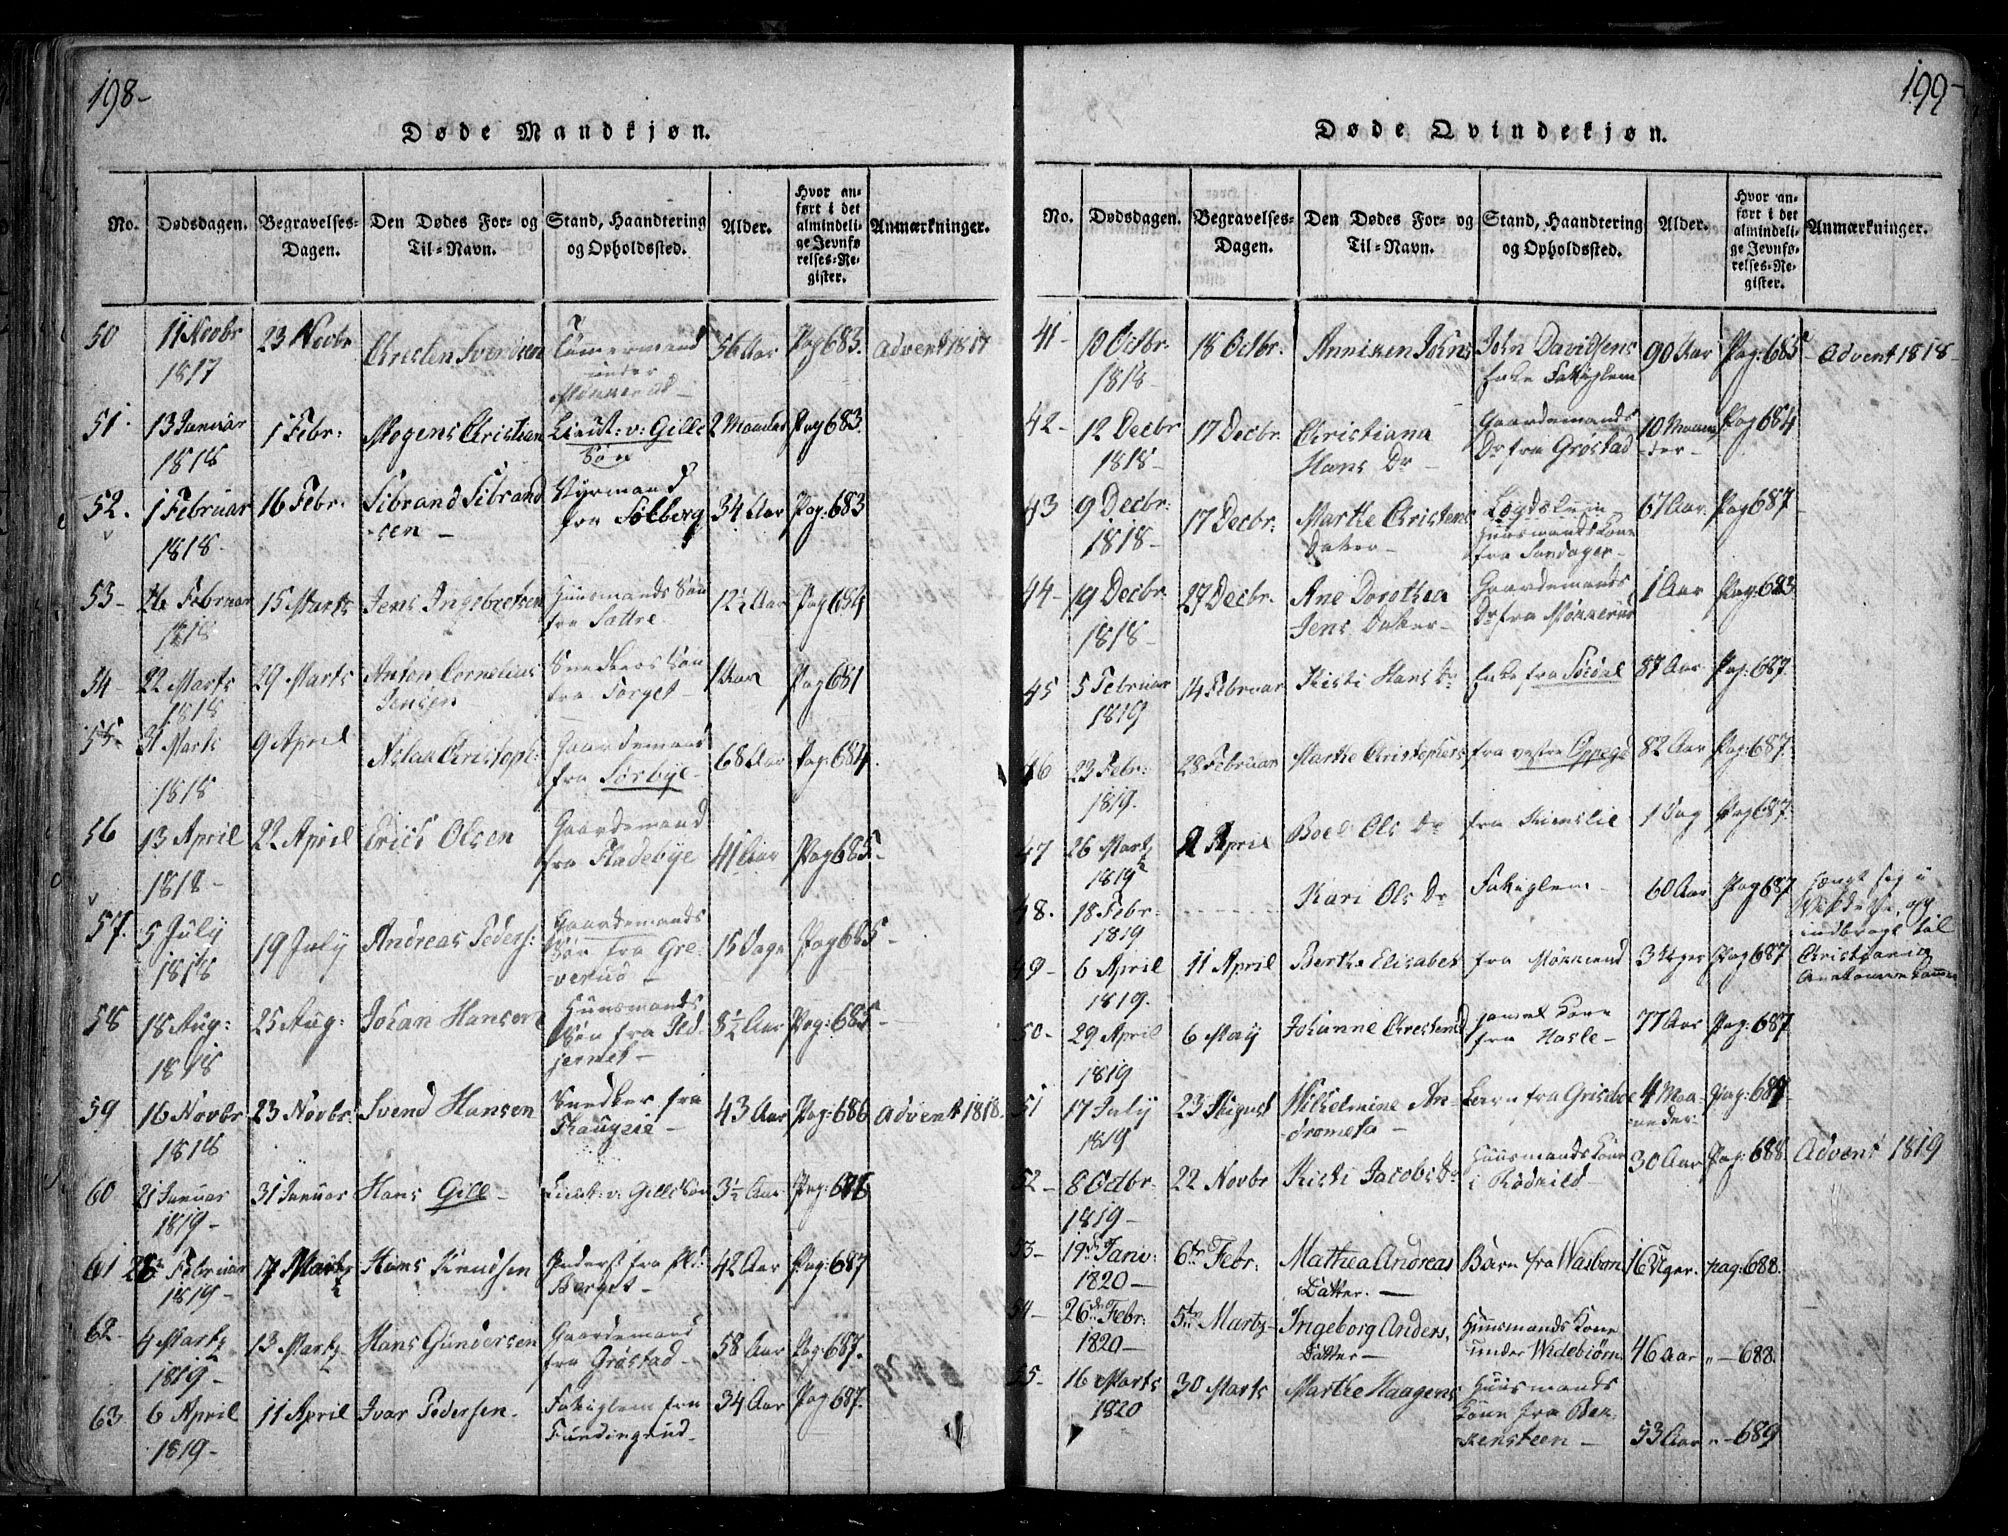 198-
Døde Mandkjøn.
No. Dødsdagen. Begravelses-Dagen. Den Dødes For- og Til-Navn. Stand, Haandtering og Opholdssted. Alder. Hvor anført i det almindelige Jevnførelses-Register. Anmærkninger.
50 11 Novbr 1817 23 Novbr Christen Svendsen Tømmermand under Mønnerud 56 Aar Pag 683. Advent 1817
51 13 Januar 1818 1 Febr: Mogens Christian Lieut: v: Gills Søn 2 Maaneder Pag 683.
52. 1 Februar 1818. 16 Febr. Sibrand Sibrandsen Styrmand fra Sølberg 34 Aar Pag: 683
53- 26 Februar 1818 15 Marts Jens Ingebretsen Huusmands Søn fra Sattre 12½ Aar Pag 684
54- 22 Marts 1818 29 Marts Anton Cornelius Jensen Snedkers Søn fra Torget 1 Aar Pag 681
55- 31 Marts 1818 9 April Aslak Christoph: Gaardemand fra Sørbye 68 Aar Pag: 684.
56 13 April 1818- 22 April Erich Olsen Gaardemand fra Fladebye 41 Aar Pag 685-
57. 5 July 1818 19 July Andreas Peders: Gaardemands Søn fra Greverud 15 Dage Pag 685-
58 18 Aug: 1818 25 Aug: Johan Hansen Huusmands Søn fra 8½ Aar Pag: 685-
59 16 Novbr 1818 23 Novbr: Svend Hansen Snedker fra 43 Aar Pag: 686 Advent 1818.
60 21 Januar 1819- 31 Januar Hans Gill- Lieut: v: Gills Søn 3½ Aar Pag: 686
61 28 Februar 1819- 14 Martz Hans Knudsen fra Berget- 42 Aar Pag: 687
62- 4 Martz 1819- 13 Martz Hans Gundersen Gaardemand fra Grøstad- 58 Aar Pag: 687.
63 6 April 1819- 11 April Ivar Pedersen. Fattiglem fra 34 Aar Pag 687.
199-
Døde Qvindekjøn.
No. Dødsdagen. Begravelses-Dagen. Den Dødes For- og Til-Navn. Stand, Haandtering og Opholdssted. Alder. Hvor anført i det almindelige Jevnførelses-Register. Anmærkninger.
41- 10 Octbr. 1818- 18 Octbr. Anniken Johns John Davidsens Enke Fattiglem 90 Aar Pag: 685- Advent 1818-
42- 12 Decbr 1818- 17 Decbr. Christiana Hans Dr- Gaardemands Dr fra Grøstad 10 Maaneder- Pag 684
43 9 Decbr: 1818- 17 Decbr: Marthe Christens Datter- Huusmands Kone fra Sondager- 67 Aar. Pag 687
44- 19 Decbr. 1818- 27 Decbr. Ane Dorothea Jens Datter- Gaardemands Dr fra Mønnerud 1 Aar Pag: 683
45 5 Februar 1819 14 Februar Kisti Hans Dr Enke fra 87 Aar Pag: 687
46 23 Febr: 1819. 28 Februar Marthe Christophers fra vestre Oppegd 82 Aar Pag: 687.
47 26 Martz 1819 2 April Boel Ols Dr fra 1 Dag Pag 687.
48. 18 Febr: 1819 - - - - Kari Ols Dr Fattiglem- 60 Aar Pag 687 hængt sig i og indbragt til Christiania
49- 6 April 1819. 11 April Berthe Elisabet fra Mønnerud 3 Uger Pag 687
50- 29 April 1819 6 May Johanne Christens gammel Kone fra Hasle- 77 Aar Pag: 687
51 17 July 1819 23 August Wilhelmine Andrometa- Barn fra 4 Maaneder- Pag: 687-
52- 8 Octbr. 1819- 22 Novbr Kisti Jacobs Dr Huusmands Kone i 30 Aar Pag: 688 Advent 1819
53- 19de Janv: 1820- 6te Febr: Mathea Andreas Datter.- Barn fra 16 Uger. pag: 688.
54- 26de Febr: 1820- 5te Martz- Ingeborg Anders, Datter- Huusmands Kone under Widebiørn 46 Aar „ - 688.
55- 16 Marts 1820 30 Marts Marthe Haagens Huusmands Kone fra Bakkensteen- 53 Aar „ - 689